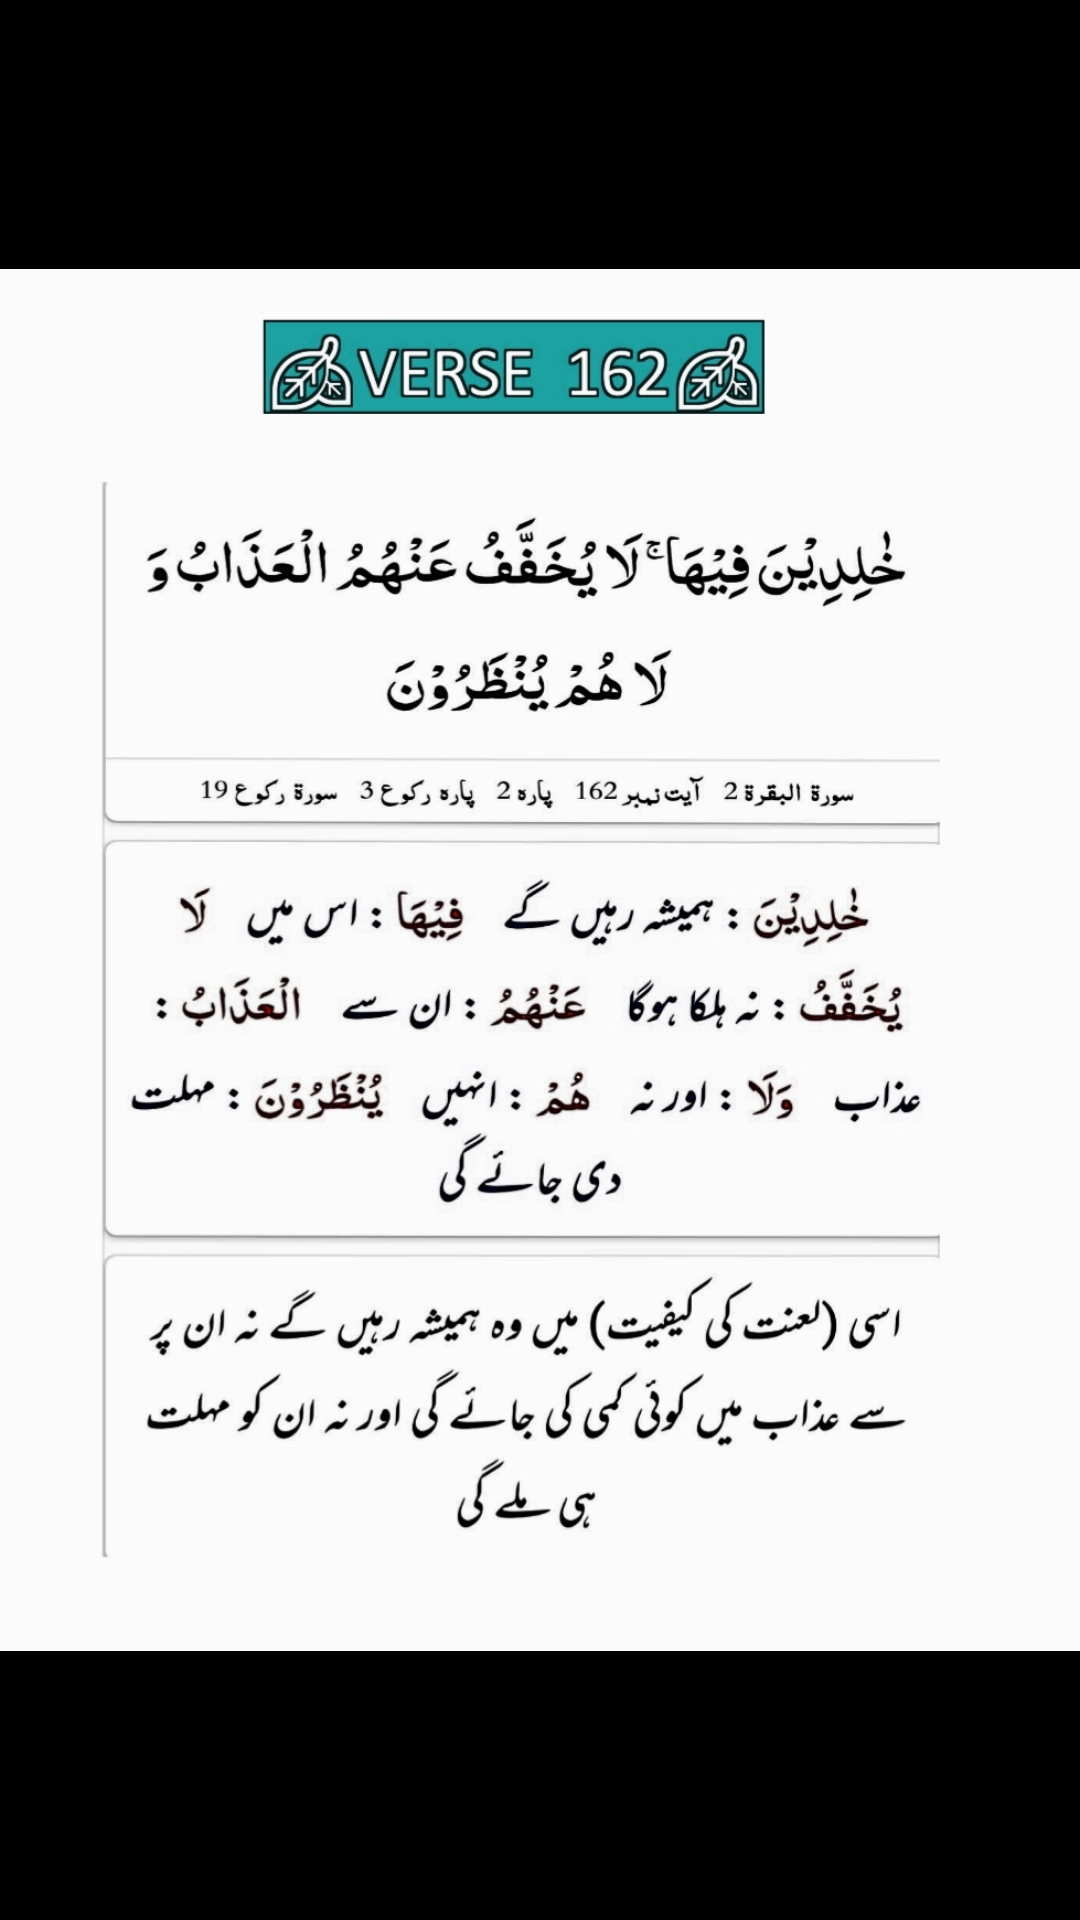 VERSE 162
خٰلِدِیْنَ فِیْهَا ۚ لَا یُخَفَّفُ عَنْهُمُ الْعَذَابُ وَ
لَا هُمْ یُنْظَرُوْنَ
سورۃ البقرۃ 2 آیت نمبر 162 پارہ 2 پارہ رکوع 3 سورۃ رکوع 19
خٰلِدِیْنَ : ہمیشہ رہیں گے فِیْهَا : اس میں لَا
یُخَفَّفُ : نہ ہلکا ہوگا عَنْهُمُ : ان سے الْعَذَابُ :
عذاب وَلَا : اور نہ هُمْ : انہیں یُنْظَرُوْنَ : مہلت
دی جائے گی
اسی (لعنت کی کیفیت) میں وہ ہمیشہ رہیں گے نہ ان پر
سے عذاب میں کوئی کمی کی جائے گی اور نہ ان کو مہلت
ہی ملے گی